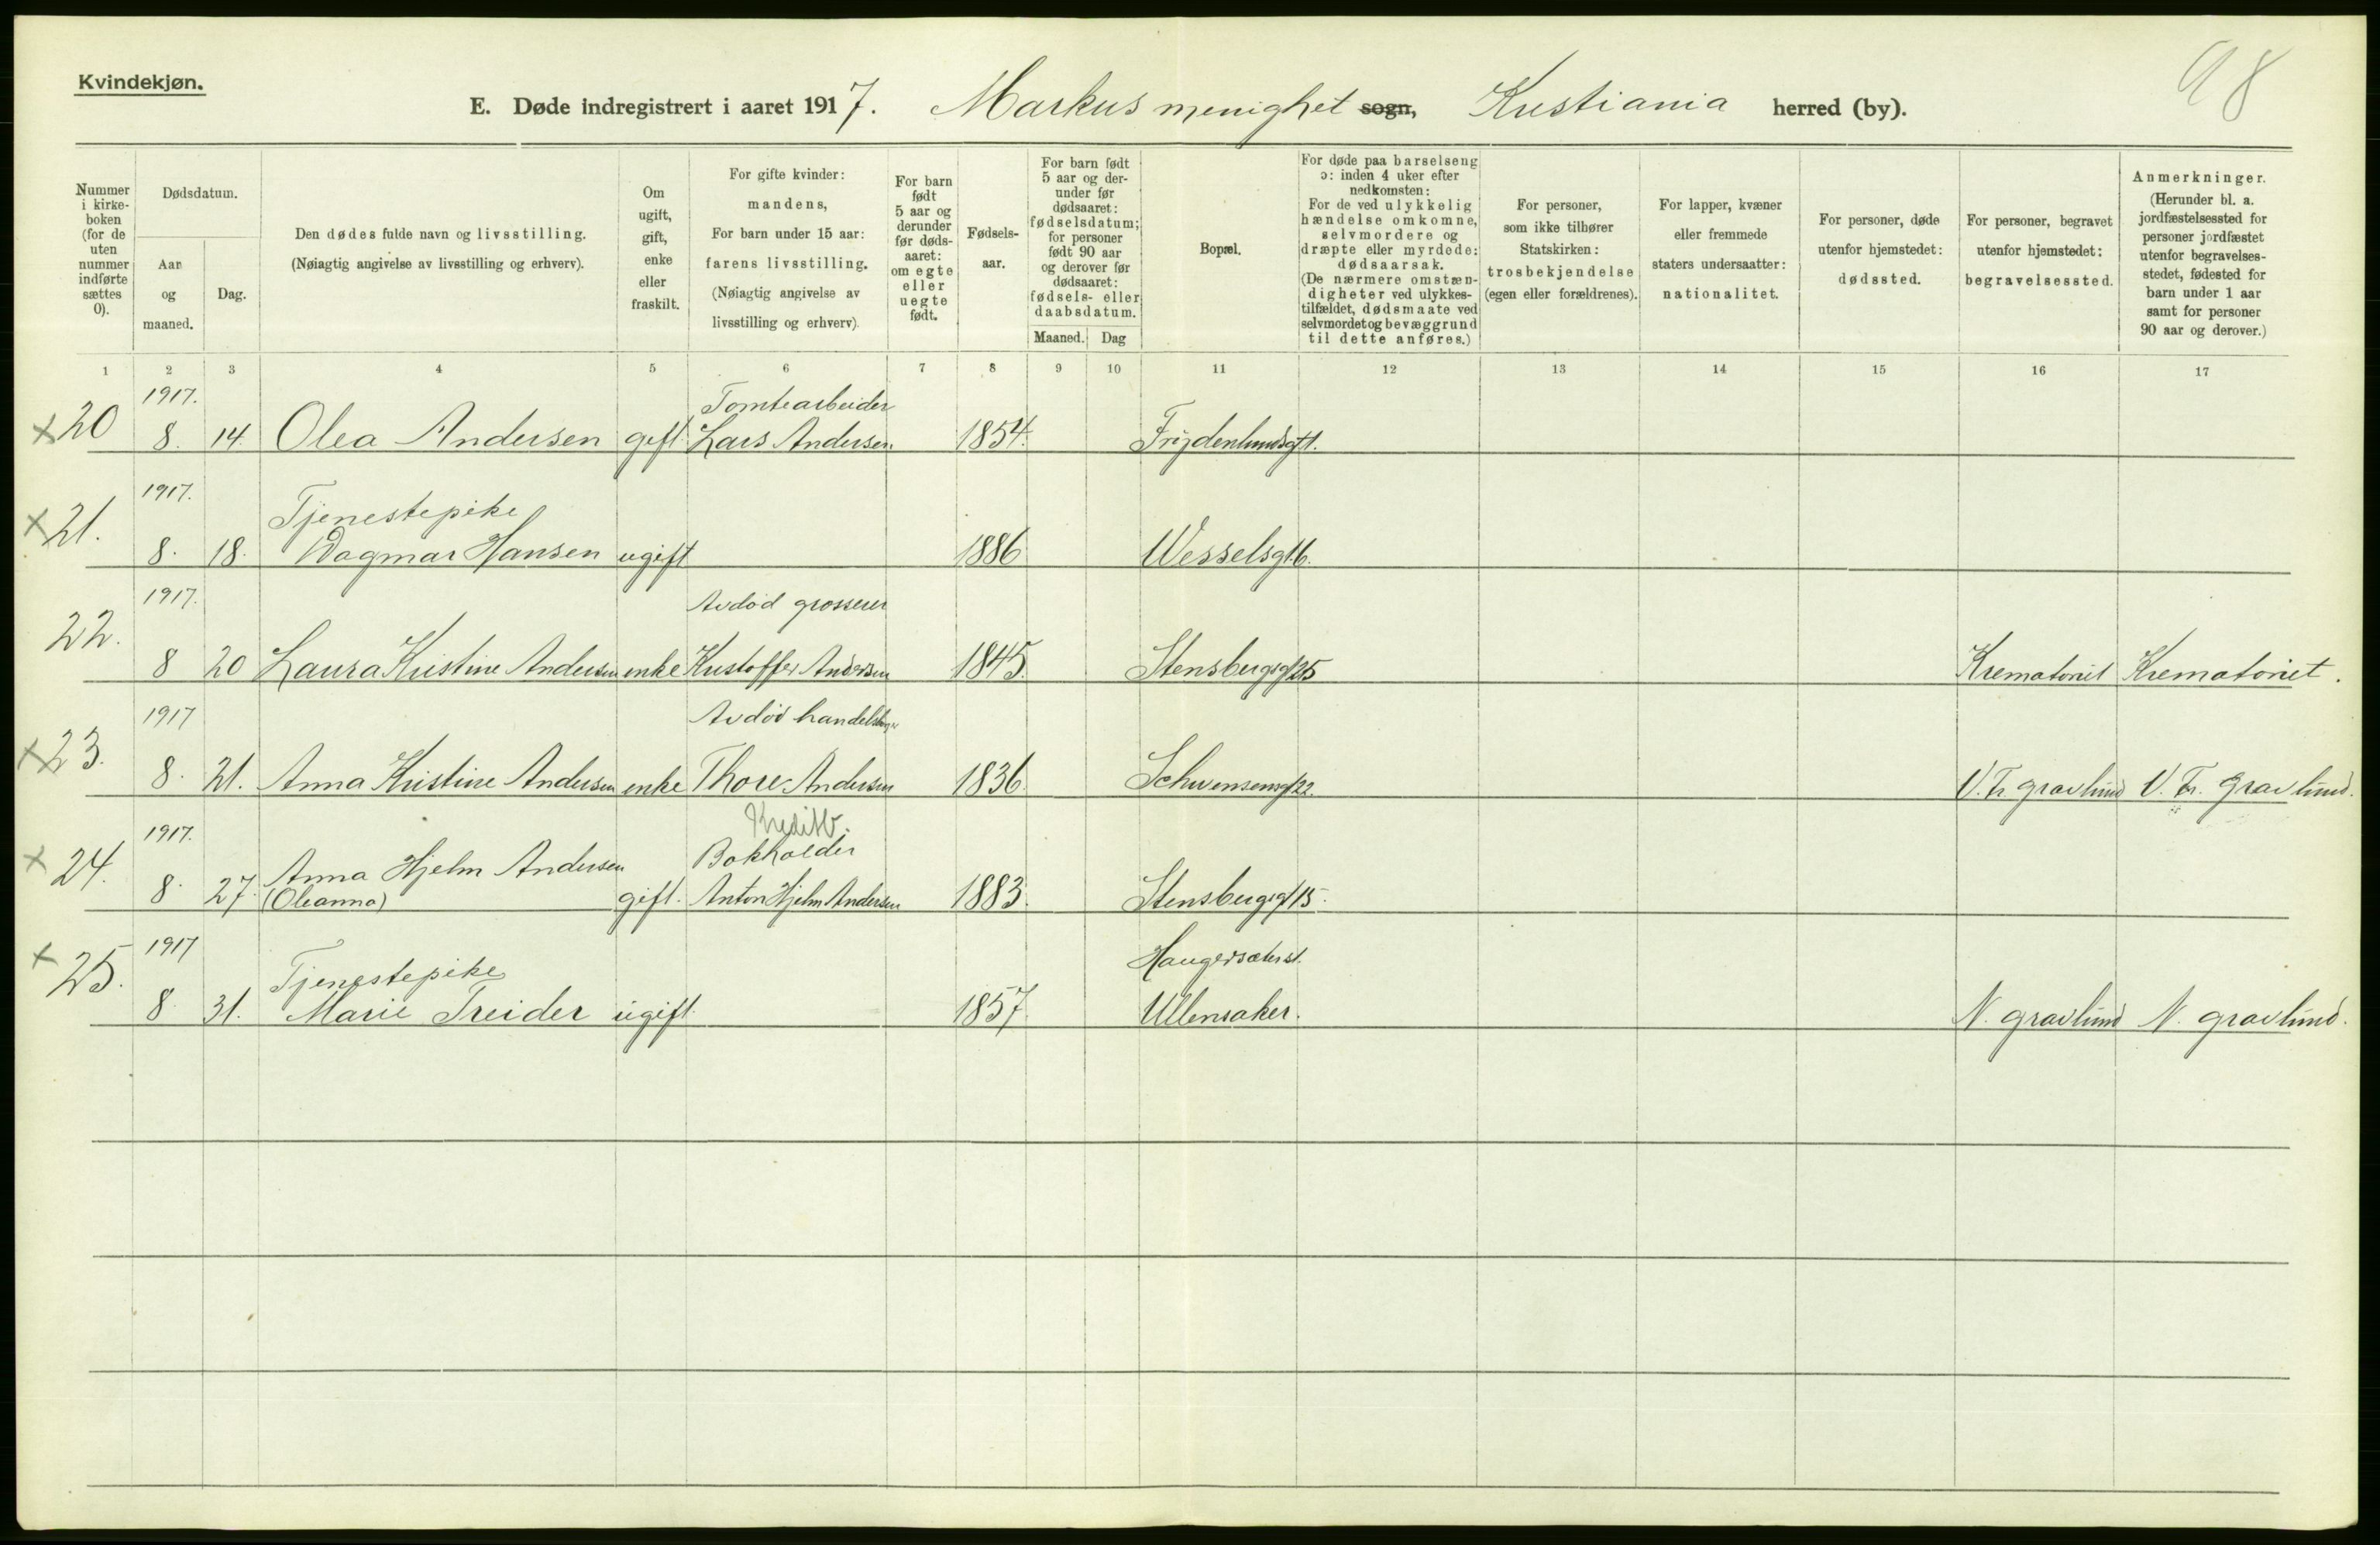 98
Kvindekjøn.
E. Døde indregistrert i aaret 1917. Markus menighet sogn, Kristiania herred (by).
Nummer i kirkeboken (for de uten nummer indførte sættes 0).
Dødsdatum.
Aar og maaned.
Dag.
Den dødes fulde navn og livsstilling.
(Nøiagtig angivelse av livsstilling og erhverv).
Om ugift, gift, enke eller fraskilt.
For gifte kvinder:
mandens,
For barn under 15 aar:
farens livsstilling.
(Nøiagtig angivelse av
livsstilling og erhverv).
For barn født 5 aar og derunder før dødsaaret: om egte eller uegte født.
Fødselsaar.
For barn født 5 aar og derunder før dødsaaret: fødselsdatum; for personer født 90 aar og derover før dødsaaret: fødsels- eller daabsdatum.
Maaned. Dag
Bopæl.
For døde paa barselseng
ɔ: inden 4 uker efter
nedkomsten:
For de ved ulykkelig
hændelse omkomne,
selvmordere og
dræpte eller myrdede:
dødsaarsak.
(De nærmere omstæn-
digheter ved ulykkes-
tilfældet, dødsmaate ved
selvmordet og bevæggrund
til dette anføres.)
For personer,
som ikke tilhører
Statskirken:
trosbekjendelse
(egen eller forældrenes).
For lapper, kvæner
eller fremmede
staters undersaatter:
nationalitet.
For personer, døde
utenfor hjemstedet:
dødssted.
For personer, begravet
utenfor hjemstedet:
begravelsessted.
Anmerkninger.
(Herunder bl. a.
jordfæstelsessted for
personer jordfæstet
utenfor begravelses-
stedet, fødested for
barn under 1 aar
samt for personer
90 aar og derover.)
1 2 3 4 5 6 7 8 9 10 11 12 13 14 15 16 17
1917. Tomtearbeider
x 20 8. 14. Olea Andersen gift. Lars Andersen. 1854. Frydenlundsgt 1.
1917. Tjenestepike
x 21. 8. 18. Dagmar Hansen ugift 1886 Wesselsgt 6.
1917. Avdød grosserer
22. 8 20 Laura Kristine Andersen enke Kristoffer Andersen 1845. Stensberggt 25 Krematoriet Krematoriet.
1917 Avdød
x 23. 8. 21. Anna Kristine Andersen enke Thore Andersen 1836. Schwensensgt 22. V. Fr. gravlund V. Fr. gravlund.
1917. Kreditb.
Bokholder
x 24. 8. 27. Anna Hjelm Andersen
(Oleanna) gift. Anton Hjelm Andersen 1883. Stensberggt 15.
1917 Tjenestepike Haugersæter st.
x 25. 8. 31. Marie Treider ugift. 1857. Ullensaker. N. gravlund N. gravlund.